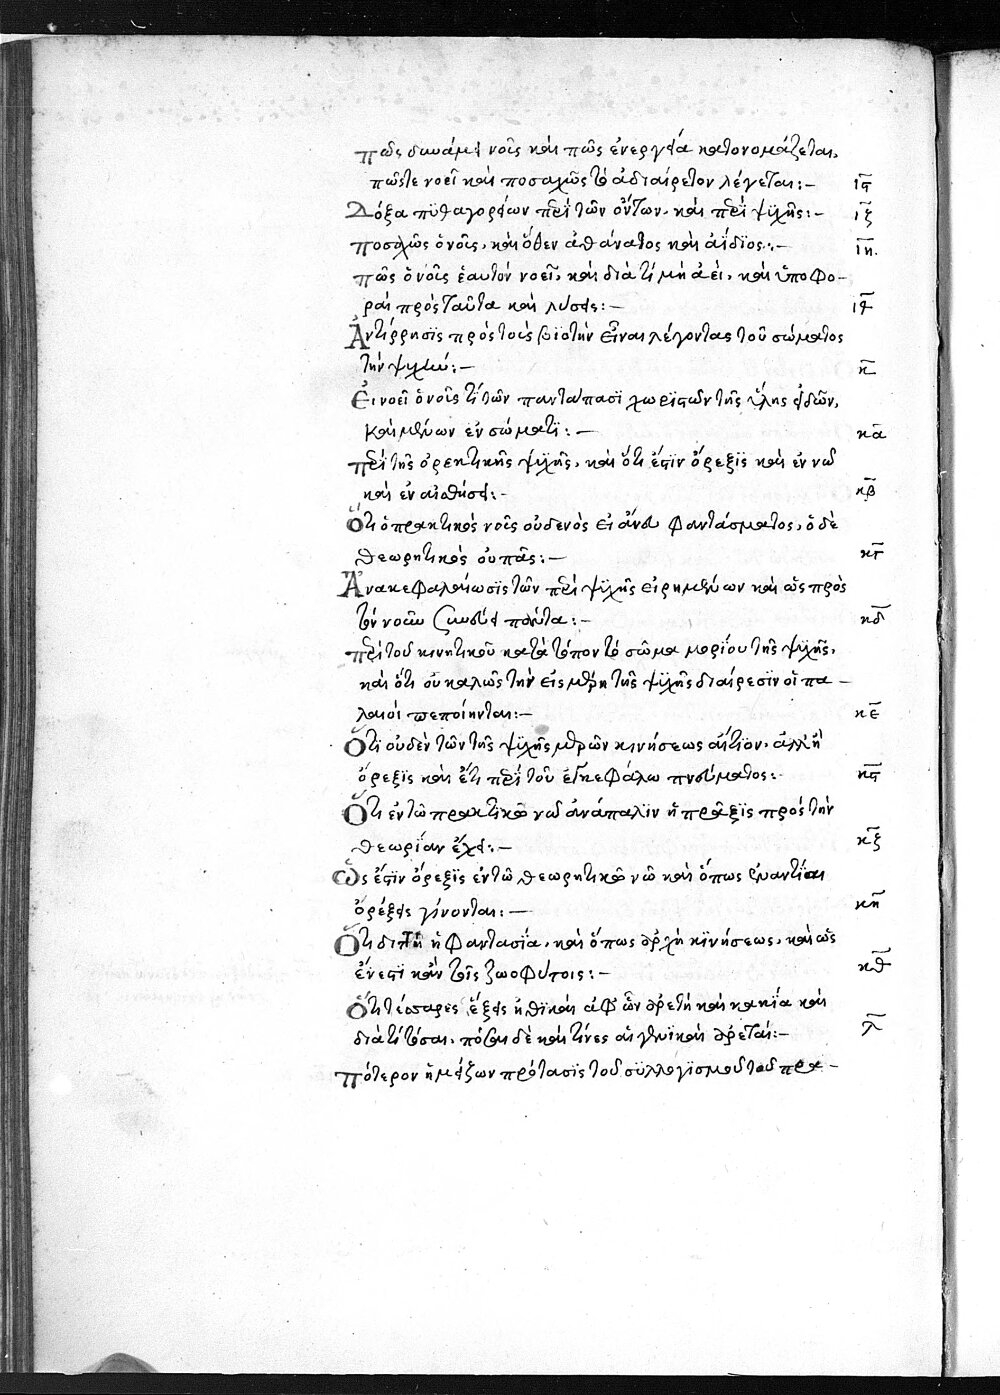 πῶς δυνάμει νοῦς καὶ πῶς ἐνεργεία κατονομάζεται,
πῶς τε νοεῖ καὶ ποσαχῶς τὸ ἀδιαίρετον λέγεται:— ις
Δόξα πυθαγορείων περὶ τῶν ὄντων, καὶ περὶ ψυχῆς:— ιζ
ποσαχῶς ὁ νοῦς, καὶ ὅθεν ἀθάνατος καὶ ἀΐδιος:— ιη
πῶς ὁ νοῦς ἑαυτὸν νοεῖ, καὶ διὰ τί μὴ ἀεὶ, καὶ ὑποφο-
ραὶ πρὸς ταῦτα καὶ λύσεις:— ιθ
Ἀντίρρησις πρὸς τοὺς εἶναι λέγοντας τοῦ σώματος
τὴν ψυχήν:— κ
Εἰ νοεῖ ὁ νοῦς τὶ τῶν πανταπασὶ χωριστῶν τῆς ὕλης εἰδῶν,
καὶ μένων ἐν σώματι:— κα
περὶ τῆς ὀρεκτικῆς ψυχῆς, καὶ ὅτι ἔστιν ὄρεξις καὶ ἐν νῷ
καὶ ἐν αἰσθήσει:— κβ
Ὅτι ὁ πρακτικὸς νοῦς οὐδενὸς εἰ ἄνευ φαντάσματος, ὁ δὲ
θεωρητικὸς οὐ πᾶς:— κγ
Ἀνακεφαλαίωσις τῶν περὶ ψυχῆς εἰρημένων καὶ ὡς πρὸς
τὸν νοῦν πάντα:— κδ
περὶ τοῦ κινητικοῦ κατὰ τόπον τὸ σῶμα μορίου τῆς ψυχῆς,
καὶ ὅτι οὐ καλῶς τὴν εἰς μέρη τῆς ψυχῆς διαίρεσιν οἱ πα-
λαιοὶ πεποίηνται:— κε
Ὅτι οὐδὲν τῶν τῆς ψυχῆς μερῶν κινήσεως αἴτιον, ἀλλ' ἡ
ὄρεξις καὶ ἔτι περὶ τοῦ ἐγκεφάλω πνεύματος:— κς
Ὅτι ἐν τῶ πρακτικῶ νῶ ἀνάπαλιν ἡ πρᾶξις πρὸς τὴν
θεωρίαν ἔχει:— κζ
Ὡς ἔστιν ὄρεξις ἐν τῶ θεωρητικῶ νῶ καὶ ὅπως ἐναντίαι
ὀρέξεις γίνονται:— κη
Ὅτι διττὴ ἡ φαντασία, καὶ ὅπως ἀρχὴ κινήσεως, καὶ ὡς
ἔνεστι κἂν τοῖς ζωοφύτοις:— κθ
Ὅτι τέσσαρες ἕξεις ἠθικαὶ ἀφ' ὧν ἀρετὴ καὶ κακία καὶ
διὰ τί τόσαι, πόσαι δὲ καὶ τίνες αἱ γενικαὶ ἀρεταί:— λ
πότερον ἡ μείζων πρότασις τοῦ συλλογισμοῦ τοῦ πρα-